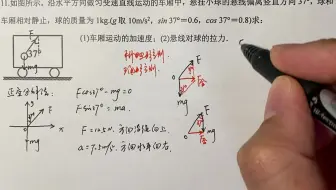 11.如图所示，沿水平方向做匀变速直线运动的车厢中，悬挂小球的悬线偏离竖直方向 37°，球和
车厢相对静止，球的质量为 1kg.(g 取 10m/s², sin 37°=0.6, cos 37°=0.8)求：
(1)车厢运动的加速度；(2)悬线对球的拉力.
F
37°
mg
正交分解法：
Fcos37°-mg=0
Fsin37°=ma.
F=12.5N.方向沿绳向上.
a=7.5m/s².方向水平向右.
F
x
mg
F
37°
F合
mg
F
F合
mg